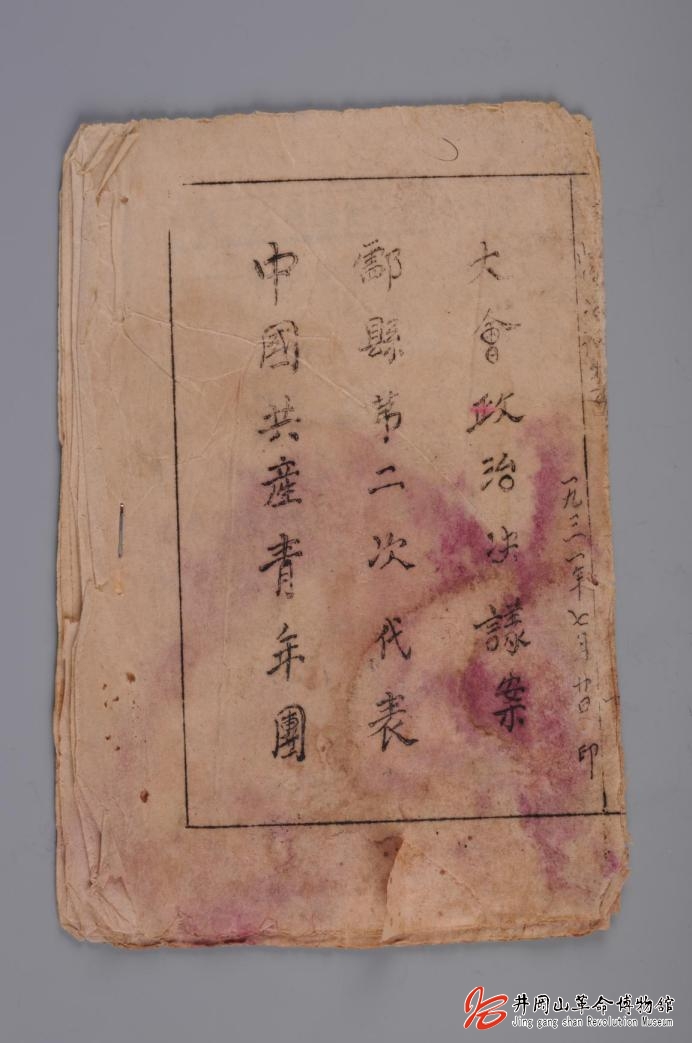 中國共産青年團
酃縣苐二次代表
大會政治决議案
一九三一年七月廿日 印
井岡山革命博物館
Jing gang shan Revolution Museum